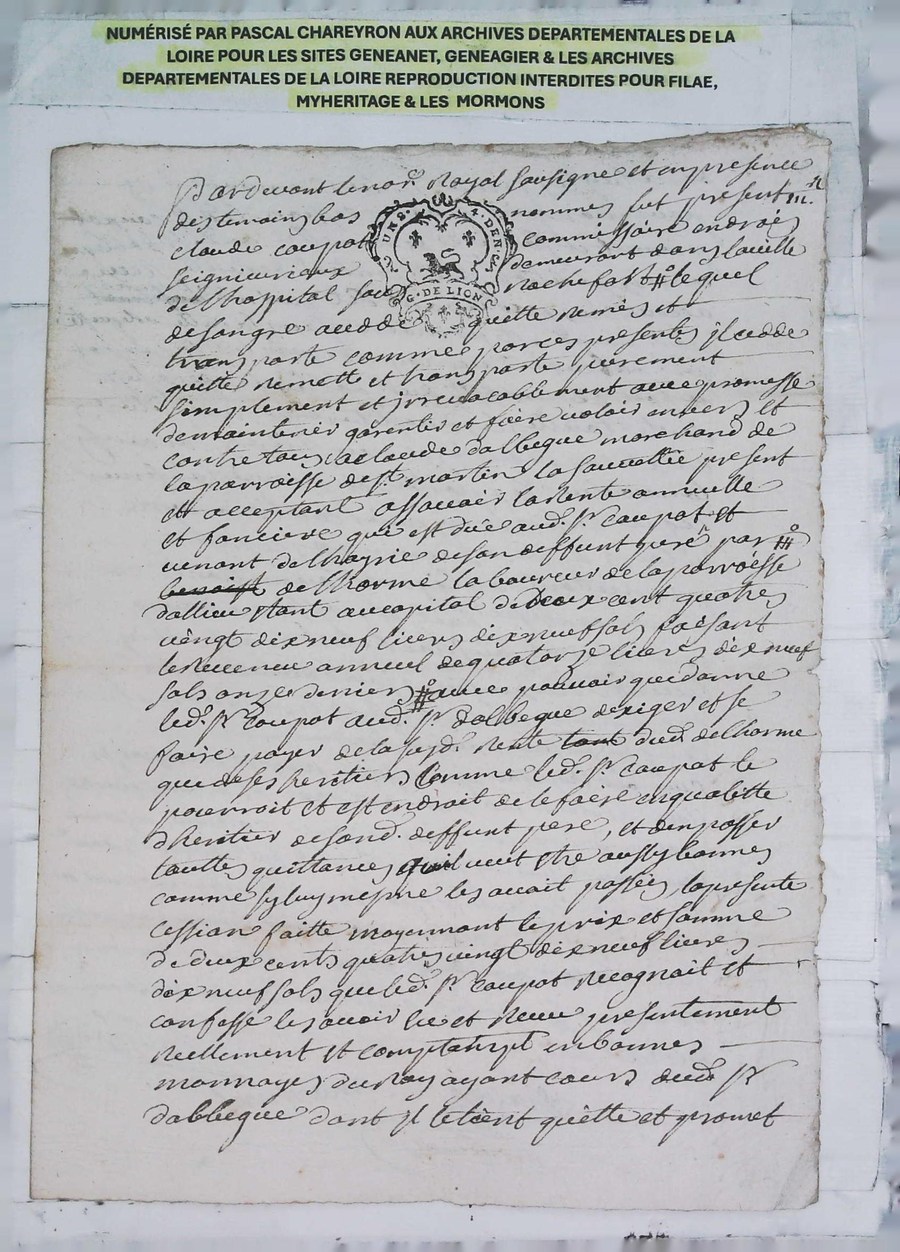 NUMÉRISÉ PAR PASCAL CHAREYRON AUX ARCHIVES DEPARTEMENTALES DE LA
LOIRE POUR LES SITES GENEANET, GENEAGIER & LES ARCHIVES
DEPARTEMENTALES DE LA LOIRE REPRODUCTION INTERDITES POUR FILAE,
MYHERITAGE & LES MORMONS
Pardevant le nore. Royal Sousigne et en presence
des temoins bas nommes fut present
UNS. 4. DEN.
claude coupat commissaire en droits
seignieuriaux demeurant dans la ville
de lhospital sou rochefort lequel
G. DE LION
de son gre a cedde quitte remis et
transporte comme par ces presentes il cedde
quitte remette et transporte purement
simplement et irrevocablement avec promesse
de maintenir garentir et faire valoir envers et
contre tous a claude dalbegue marchand de
la parroisse de st martin la sauvetté present
et acceptant assavoir la rente annuelle
et fonciere qui est düe aud. sr. coupat et
venant de lhoyrie de son deffunt pere par
benoist de lhorme laboureur de la parroisse
dallieu etant au capital de deux cent quatre
vingt dix neuf livres dix neuf sols faisant
le revenu annuel de quatorze livres dix neuf
sols onze deniers avec pouvoir que donne
led. sr. coupat aud. sr. dalbegue dexiger et se
faire payer de la susd. rente tant dud. delhorme
que de ses heritiers comme led. sr. coupat le
pourroit et est en droit de le faire en qualitte
dheritier de sond. deffunt pere, et den passer
touttes quittances quil veut etre aussy bonnes
comme sy luy mesme les avoit passées, la presente
cession faitte moyennant le prix et somme
de deux cents quatre vingt dix neuf livres
dix neuf sols que led. sr. coupat recognoit et
confesse les avoir eu et receu presentement
reellement et comptant en bonnes
monnoyes du roy ayant cours dud. sr
dalbegue dont il le tient quitte et promet